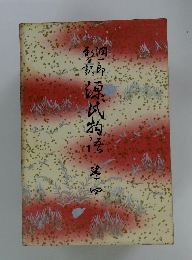 潤一郎
新訳
源氏物語 巻四